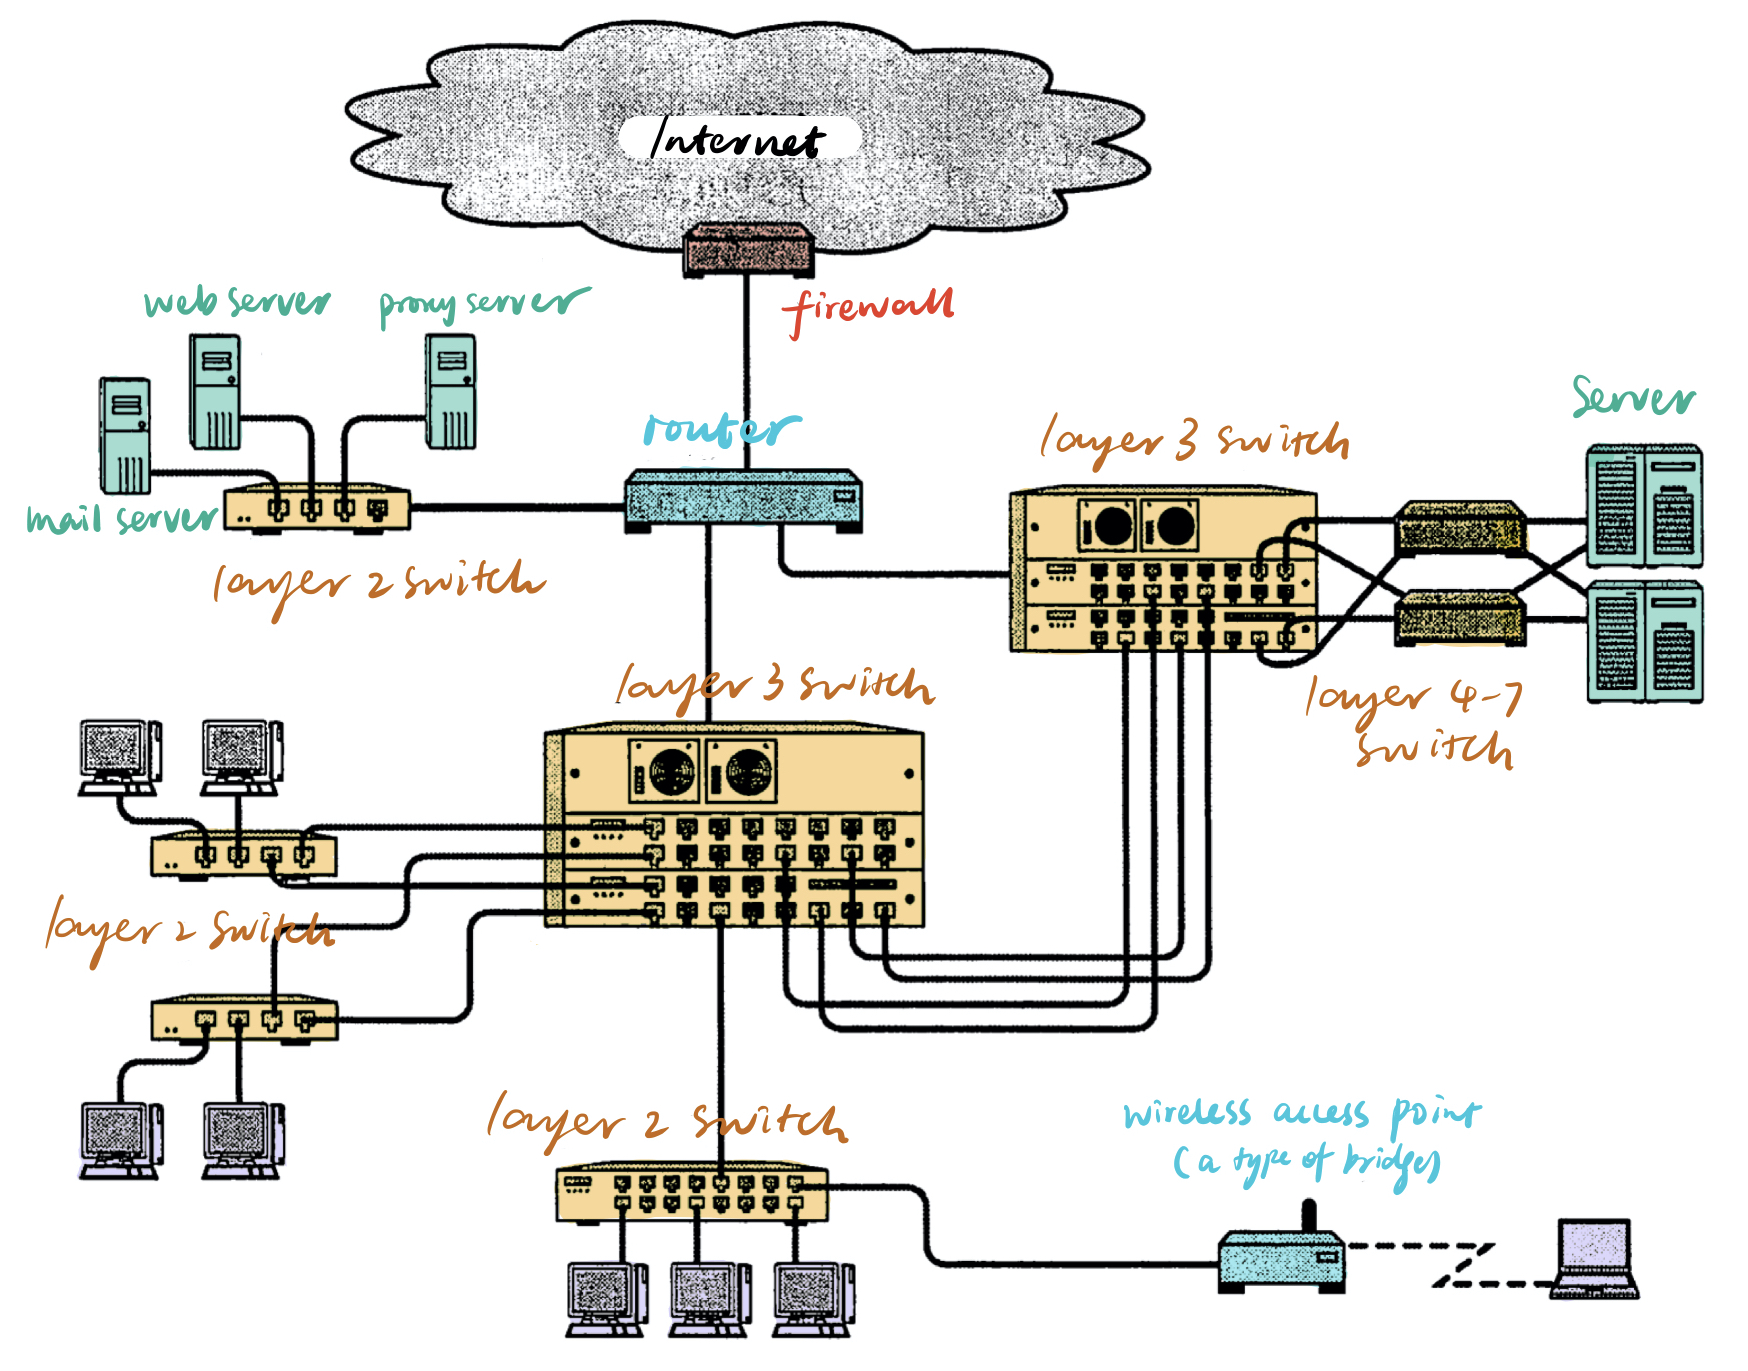 Internet
firewall
web server
proxy server
mail server
router
layer 2 switch
layer 3 switch
Server
layer 3 switch
layer 4-7
switch
layer 2 switch
layer 2 switch
wireless access point
(a type of bridge)